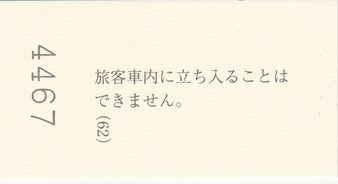 4467
旅客車内に立ち入ることは
できません。
(62)